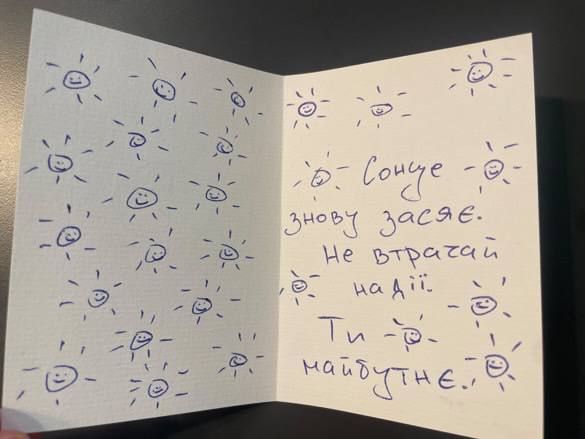 Сонце
знову засяє.
Не втрачай
надії.
Ти
майбутнє.